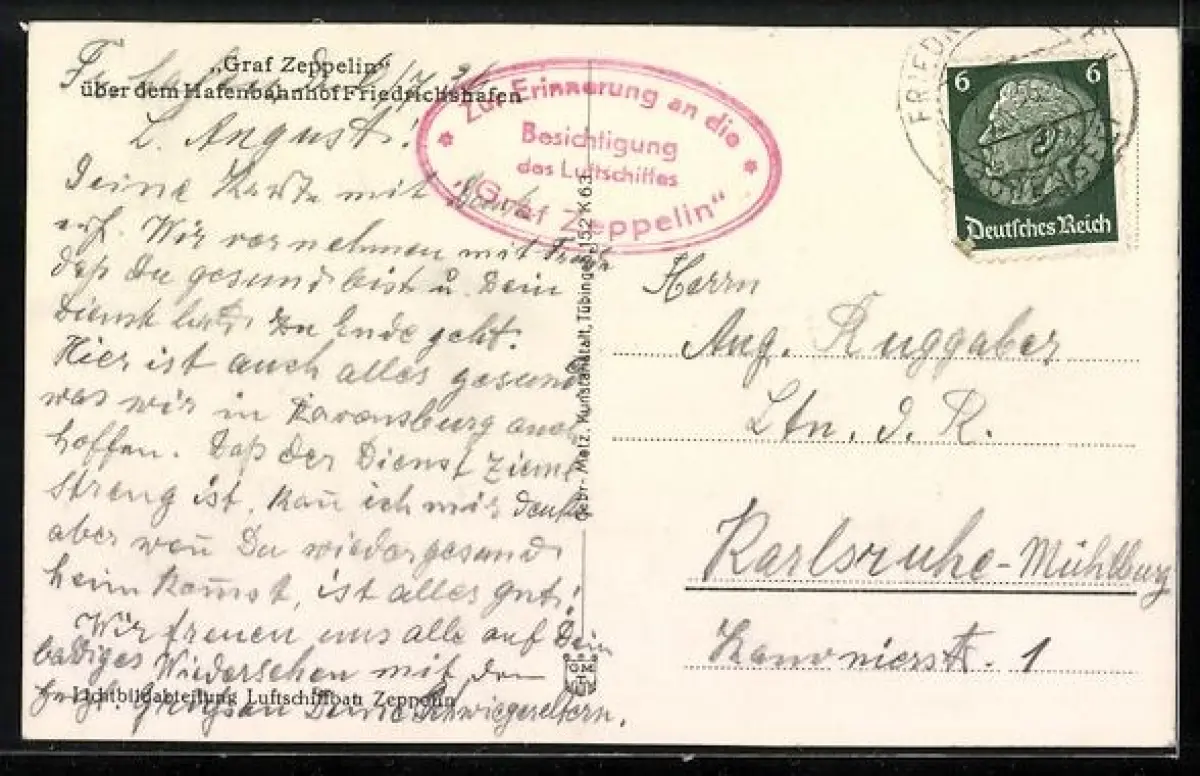 „Graf Zeppelin“
über dem Hafenbahnhof Friedrichshafen
L. August!
Deine Karte mit Dank
erh. Wir vernehmen mit Freude
daß Du gesund bist u. Dein
Dienst bald zu Ende geht.
Hier ist auch alles gesund
was wir in Ravensburg auch
hoffen. Daß der Dienst zieml.
streng ist, kan̅ ich mir denken
aber wen̅ Du wieder gesund
heim kom̅st, ist alles gut!
Wir freuen uns alle auf Dein
baldiges Wiedersehen mit den
herzl. Grüßen Deine Schwiegereltern.
Lichtbildabteilung Luftschiffbau Zeppelin
Gebr. Metz, Kunstanstalt, Tübingen
52 K 63
G M
Zur Erinnerung an die
Besichtigung
des Luftschiffes
„Graf Zeppelin“
6 6
Deutsches Reich
Herrn
Aug. Ruggaber
Ltn. d. R.
Karlsruhe-Mühlburg
1